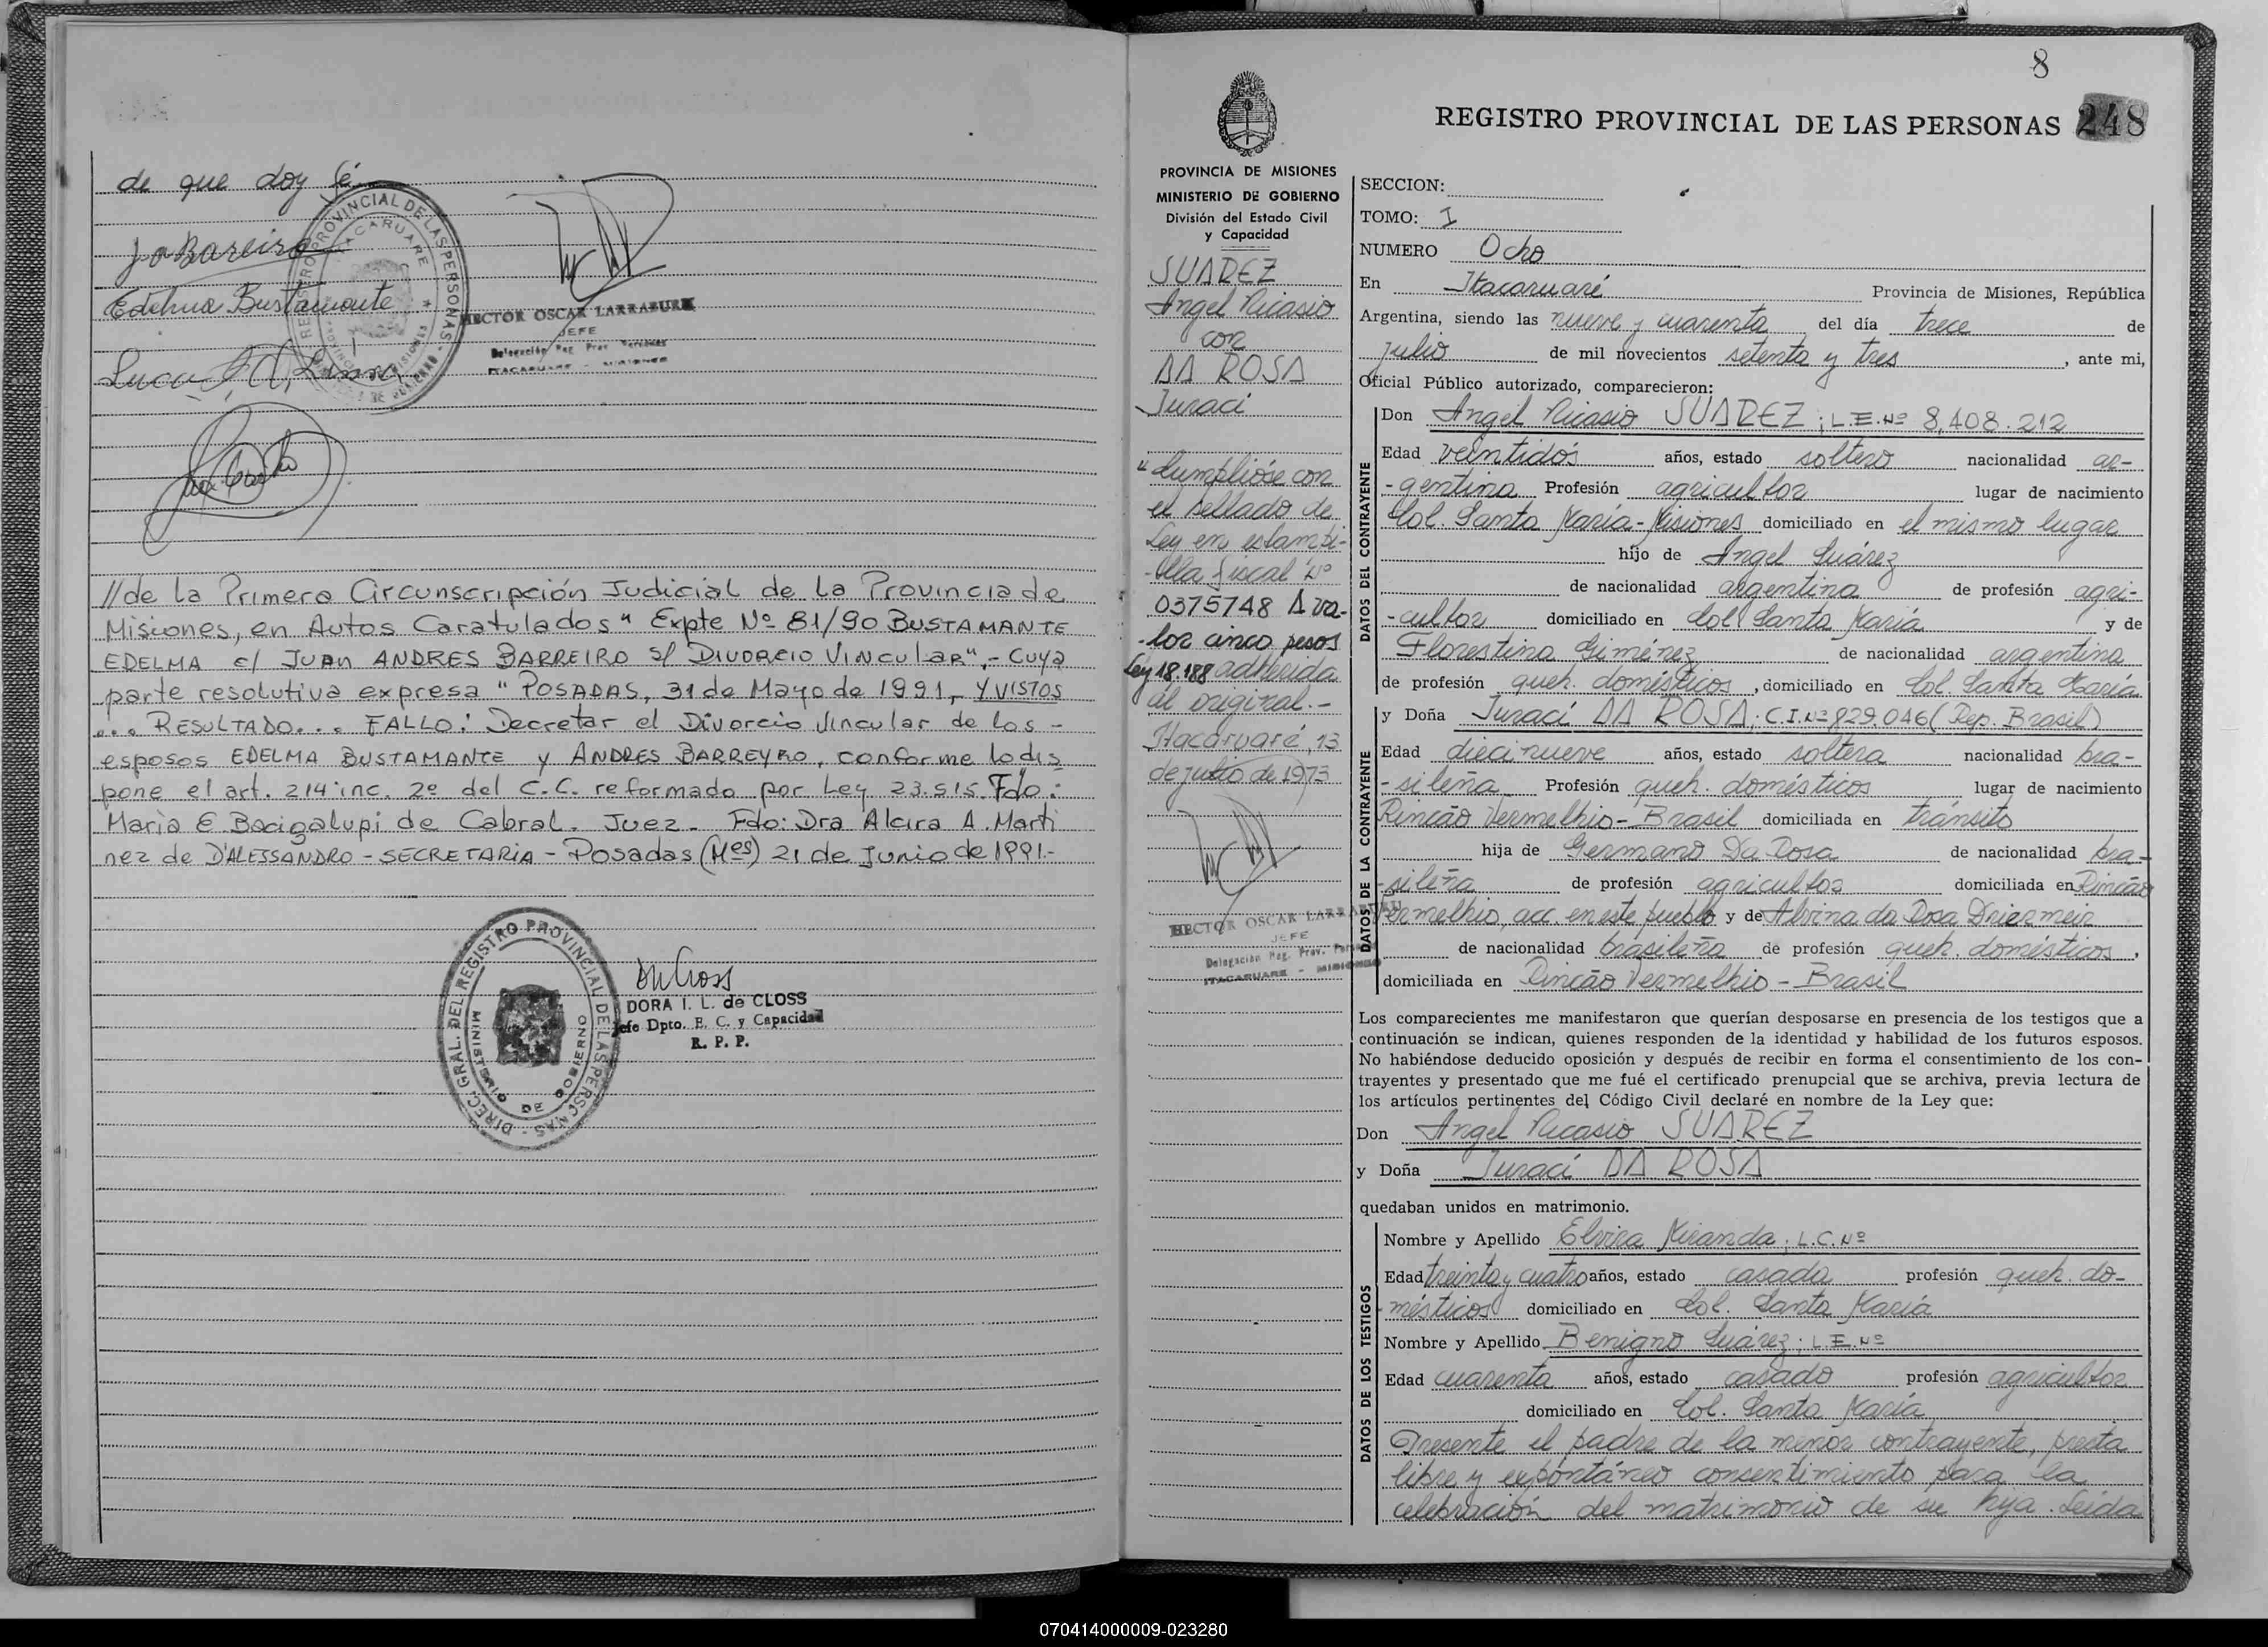 de que doy fé
Jo Bareiro
Edelma Bustamonte
REGISTRO PROVINCIAL DE LAS PERSONAS
ITACARUARE
HECTOR OSCAR LARRABURU
JEFE
Delegación Reg. Prov. Personas
ITACARUARE - MISIONES
// de la Primera Circunscripción Judicial de la Provincia de
Misiones, en Autos Caratulados " Expte Nº 81/90 BUSTAMANTE
EDELMA c/ JUAN ANDRES BARREIRO s/ DIVORCIO VINCULAR",- Cuya
parte resolutiva expresa " POSADAS, 31 de Mayo de 1991,- Y VISTOS
... RESULTADO... FALLO: Decretar el Divorcio Vincular de los -
esposos EDELMA BUSTAMANTE y ANDRES BARREYRO, conforme lo dis
pone el art. 214 inc. 2º del C.C. reformado por Ley 23.515. Fdo:
Maria E Bacigalupi de Cabral. Juez. Fdo: Dra Alcira A. Marti
nez de D'ALESSANDRO - SECRETARIA - Posadas (Mes) 21 de Junio de 1991.-
DIREC. GRAL. DEL REGISTRO PROVINCIAL DE LAS PERSONAS
MINISTERIO DE GOBIERNO
DORA I. L. de CLOSS
Jefe Dpto. E. C. y Capacidad
R. P. P.
8
REGISTRO PROVINCIAL DE LAS PERSONAS 248
PROVINCIA DE MISIONES
MINISTERIO DE GOBIERNO
División del Estado Civil
y Capacidad
SUAREZ
Angel Nicasio
con
DA ROSA
Juraci
"Cumplióse con
el sellado de
Ley en estampi-
-lla fiscal Nº
0375748 A va-
-lor cinco pesos
Ley 18.188 adherida
al original.-
Itacaruaré, 13
de julio de 1973
HECTOR OSCAR LARRABURU
JEFE
Delegación Reg. Prov. Personas
ITACARUARE - MISIONES
SECCION:
TOMO: I
NUMERO Ocho
En Itacaruaré Provincia de Misiones, República
Argentina, siendo las nueve y cuarenta del día trece de
julio de mil novecientos setenta y tres, ante mi,
Oficial Público autorizado, comparecieron:
DATOS DEL CONTRAYENTE
Don Angel Nicasio SUAREZ; L.E.Nº 8,408.212
Edad veintidós años, estado soltero nacionalidad ar-
-gentina Profesión agricultor lugar de nacimiento
Col. Santa María - Misiones domiciliado en el mismo lugar
hijo de Angel Suárez
de nacionalidad argentina de profesión agri-
-cultor domiciliado en Col. Santa María y de
Florestina Giménez de nacionalidad argentina
de profesión queh. domésticos, domiciliado en Col. Santa María
DATOS DE LA CONTRAYENTE
y Doña Juraci DA ROSA; C.I.Nº 829.046 (Rep. Brasil)
Edad diecinueve años, estado soltera nacionalidad bra-
-sileña Profesión queh. domésticos lugar de nacimiento
Rincão Vermelhio - Brasil domiciliada en tránsito
hija de Germano Da Rosa de nacionalidad bra-
-sileña de profesión agricultor domiciliada en Rincão
Vermelhio, acc. en este pueblo y de Alvina da Rosa Driermeir
de nacionalidad brasileña de profesión queh. domésticos,
domiciliada en Rincão Vermelhio - Brasil
Los comparecientes me manifestaron que querían desposarse en presencia de los testigos que a
continuación se indican, quienes responden de la identidad y habilidad de los futuros esposos.
No habiéndose deducido oposición y después de recibir en forma el consentimiento de los con-
trayentes y presentado que me fué el certificado prenupcial que se archiva, previa lectura de
los artículos pertinentes del Código Civil declaré en nombre de la Ley que:
Don Angel Nicasio SUAREZ
y Doña Juraci DA ROSA
quedaban unidos en matrimonio.
DATOS DE LOS TESTIGOS
Nombre y Apellido Elvira Miranda; L.C.Nº
Edad treinta y cuatro años, estado casada profesión queh. do-
-mésticos domiciliado en Col. Santa María
Nombre y Apellido Benigno Suárez; L.E.Nº
Edad cuarenta años, estado casado profesión agricultor
domiciliado en Col. Santa María
Presente el padre de la menor contrayente, presta
libre y expontáneo consentimiento para la
celebración del matrimonio de su hija. Leída
070414000009-023280